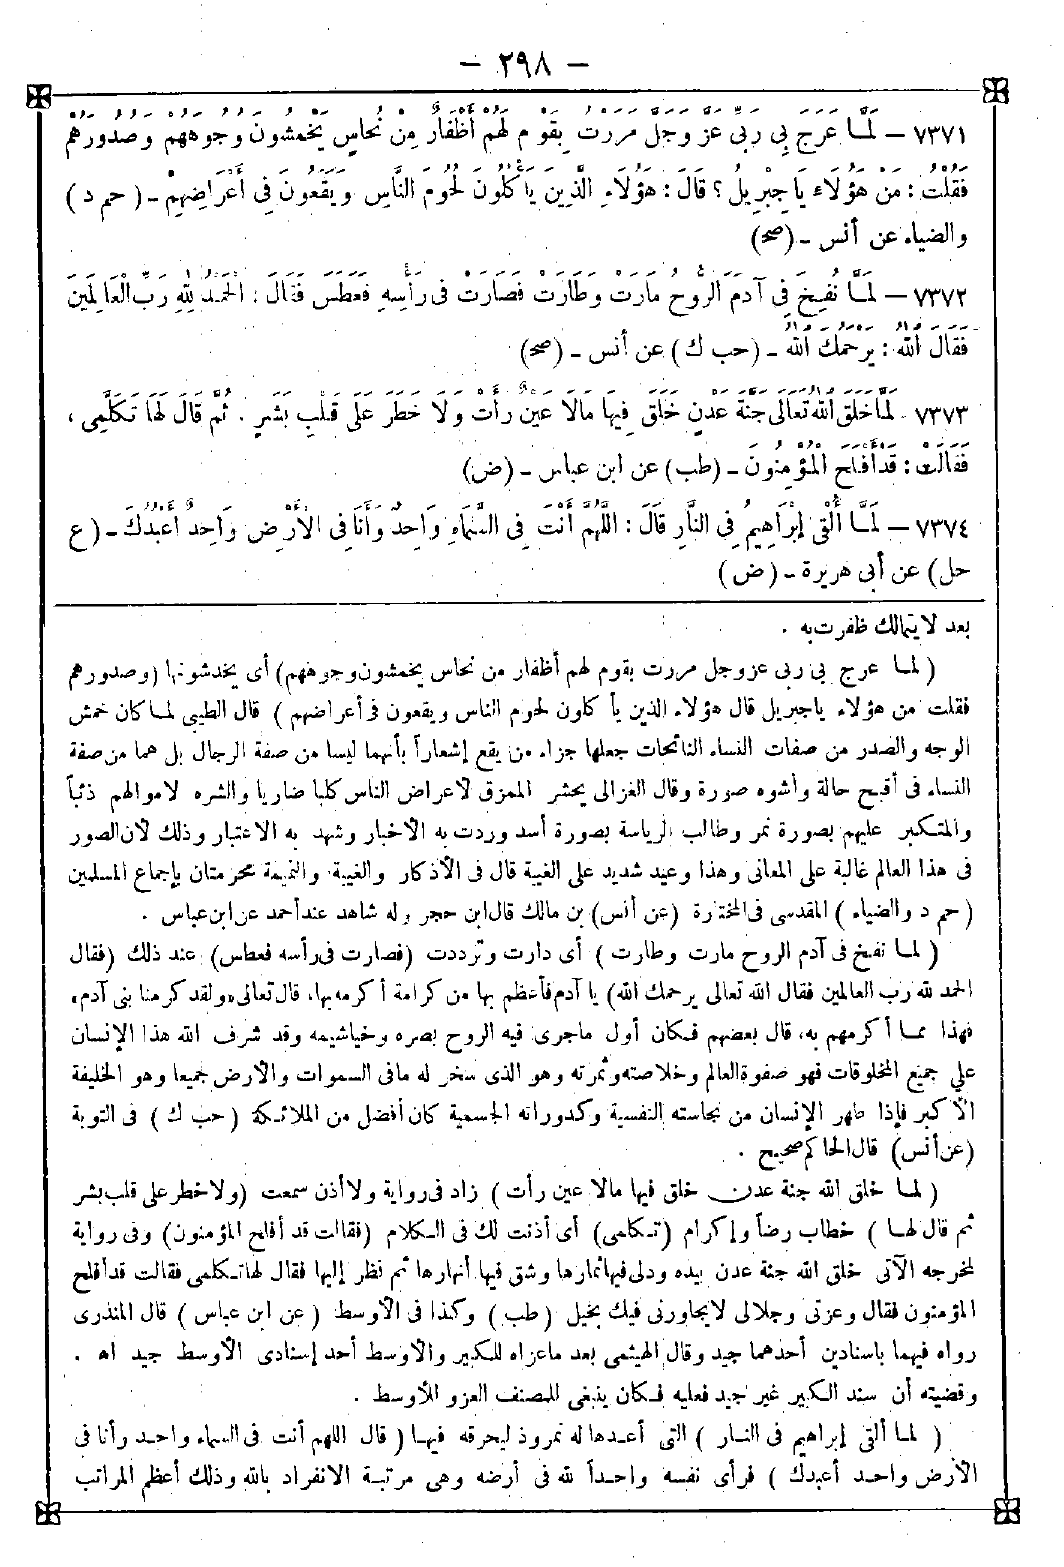 — ٢٩٨ —
٧٣٧١ — لَمَّا عَرَجَ بِي رَبِّي عَزَّ وَجَلَّ مَرَرْتُ بِقَوْمٍ لَهُمْ أَظْفَارٌ مِنْ نُحَاسٍ يَخْمِشُونَ وُجُوهَهُمْ وَصُدُورَهُمْ
فَقُلْتُ : مَنْ هَؤُلَاءِ يَاجِبْرِيلُ ؟ قَالَ : هَؤُلَاءِ الَّذِينَ يَأْكُلُونَ لُحُومَ النَّاسِ وَيَقَعُونَ فِي أَعْرَاضِهِمْ - ( حم د )
والضياء عن أنس - (صح)
٧٣٧٢ — لَمَّا نُفِخَ فِي آدَمَ الرُّوحُ مَارَتْ وَطَارَتْ فَصَارَتْ فِي رَأْسِهِ فَعَطَسَ فَقَالَ : الْحَمْدُ لِلّهِ رَبِّ الْعَالَمِينَ
فَقَالَ اللهُ : يَرْحَمُكَ اللهُ - (حب ك ) عن أنس - (صح)
٧٣٧٣ - لَمَّا خَلَقَ اللهُ تَعَالَى جَنَّةَ عَدْنٍ خَلَقَ فِيهَا مَالَا عَيْنٌ رَأَتْ وَلَا خَطَرَ عَلَى قَلْبِ بَشَرٍ . ثُمَّ قَالَ لَهَا تَكَلَّمِي ،
فَقَالَتْ : قَدْ أَفْلَحَ الْمُؤْمِنُونَ - (طب) عن ابن عباس - (ض)
٧٣٧٤ — لَمَّا أُلْقِيَ إِبْرَاهِيمُ فِي النَّارِ قَالَ : اللَّهُمَّ أَنْتَ فِي السَّمَاءِ وَاحِدٌ وَأَنَا فِي الْأَرْضِ وَاحِدٌ أَعْبُدُكَ - (ع
حل) عن أبي هريرة - ( ض )
بعد لا يتمالك ظفرت به .
( لما عرج بي ربى عز وجل مررت بقوم لهم أظفار من نحاس يخمشون وجوههم) أى يخدشونها (وصدورهم
فقلت من هؤلاء ياجبريل قال هؤلاء الذين يأكلون لحوم الناس ويقعون فى أعراضهم ) قال الطيبي لما كان خمش
الوجه والصدر من صفات النساء النائحات جعلها جزاء من يقع إشعاراً بأنهما ليسا من صفة الرجال بل هما من صفة
النساء فى أقبح حالة وأشوه صورة وقال الغزالى يحشر الممزق لاعراض الناس كلبا ضاريا والشره لاموالهم ذئباً
والمتكبر عليهم بصورة نمر وطالب الرياسة بصورة أسد وردت به الأخبار وشهد به الاعتبار وذلك لأن الصور
فى هذا العالم غالبة على المعانى وهذا وعيد شديد على الغيبة قال فى الأذكار والغيبة والنميمة محرمتان بإجماع المسلمين
(حم د والضياء ) المقدسى فى المختارة (عن أنس) بن مالك قال ابن حجر وله شاهد عند أحمد عن ابن عباس .
( لما نفخ فى آدم الروح مارت وطارت ) أى دارت وترددت (فصارت فى رأسه فعطس) عند ذلك (فقال
الحمد لله رب العالمين فقال الله تعالى يرحمك الله) يا آدم فأعظم بها من كرامة أكرمه بها، قال تعالى «ولقد كرمنا بنى آدم»
فهذا مما أكرمهم به، قال بعضهم فكان أول ماجرى فيه الروح بصره وخياشيمه وقد شرف الله هذا الإنسان
على جميع المخلوقات فهو صفوة العالم وخلاصته وثمرته وهو الذى سخر له مافى السموات والأرض جميعا وهو الخليفة
الأكبر فإذا طهر الإنسان من نجاسته النفسية وكدوراته الجسمية كان أفضل من الملائكة (حب ك ) فى التوبة
(عن أنس) قال الحاكم صحيح .
( لما خلق الله جنة عدن خلق فيها مالا عين رأت ) زاد فى رواية ولا أذن سمعت (ولا خطر على قلب بشر
ثم قال لها ) خطاب رضاً وإكرام (تكلمى) أى أذنت لك فى الكلام (فقالت قد أفلح المؤمنون) وفى رواية
لمخرجه الآتى خلق الله جنة عدن بيده ودلى فيها ثمارها وشق فيها أنهارها ثم نظر إليها فقال لها تكلمى فقالت قد أفلح
المؤمنون فقال وعزتى وجلالى لايجاورنى فيك بخيل (طب ) وكذا فى الأوسط ( عن ابن عباس ) قال المنذرى
رواه فيهما باسنادين أحدهما جيد وقال الهيثمى بعد ماعزاه للكبير والأوسط أحد إسنادى الأوسط جيد اه .
وقضيته أن سند الكبير غير جيد فعليه فكان ينبغى للمصنف العزو للأوسط .
( لما ألقى إبراهيم فى النار ) التى أعدها له نمروذ ليحرقه فيها ( قال اللهم أنت فى السماء واحد وأنا فى
الأرض واحد أعبدك ) فرأى نفسه واحداً لله فى أرضه وهى مرتبة الانفراد بالله وذلك أعظم المراتب